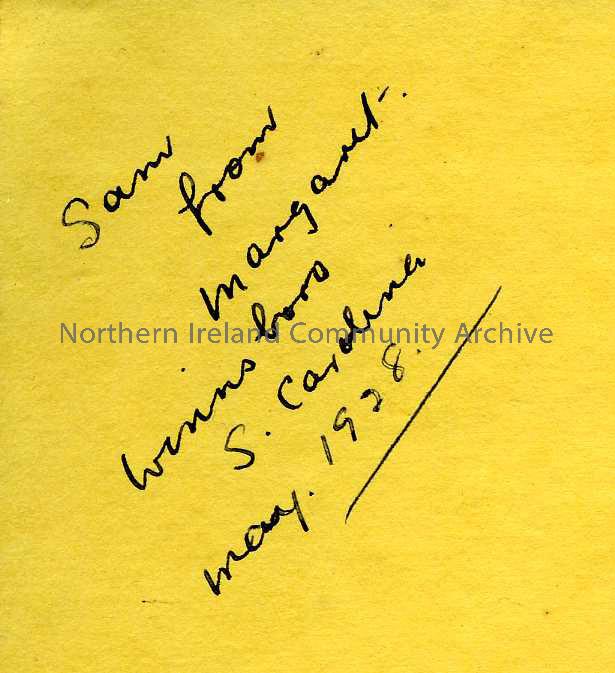 Sam
from
Margaret.
Winnsboro
S. Carolina
May. 1928.
Northern Ireland Community Archive